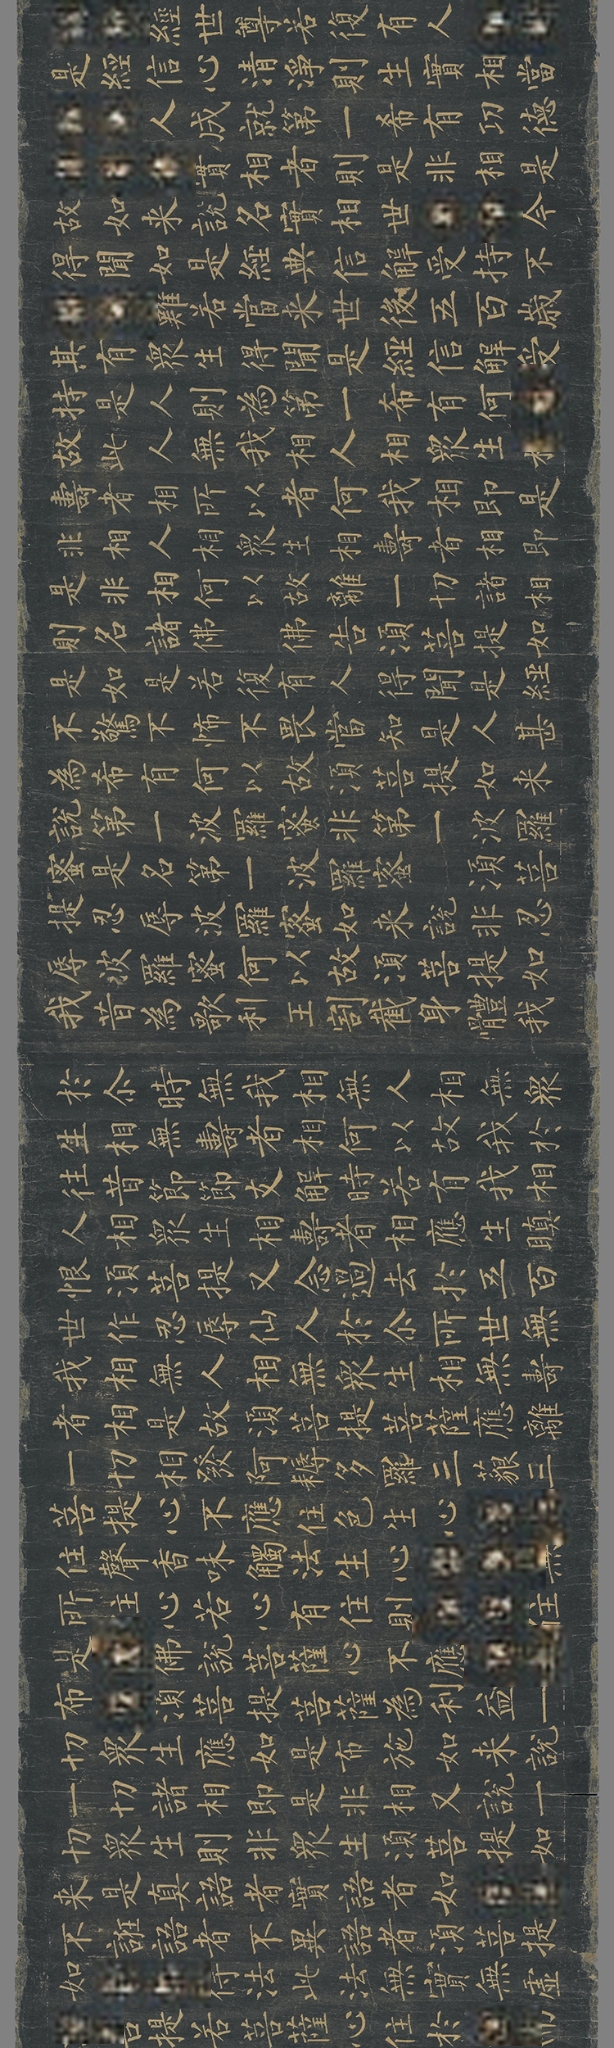 經世尊若復有人
是經信心清淨則生實相當
人成就第一希有功德
實相者則是非相是
故如来說名實相世今
得聞如是經典信解受持不
難若當来世後五百歲
其有衆生得聞是經信解受
持是人則為第一希有何
故此人無我相人相衆生相
壽者相所以者何我相即是
非相人相衆生相壽者相即
是非相何以故離一切諸相
則名諸佛佛告須菩提如
是如是若復有人得聞是經
不驚不怖不畏當知是人甚
為希有何以故須菩提如来
說第一波羅蜜非第一波羅
蜜是名第一波羅蜜須菩
提忍辱波羅蜜如来說非忍
辱波羅蜜何以故須菩提如
我昔為歌利王割截身體我
於尒時無我相無人相無衆
生相無壽者相何以故我於
往昔節節支解時若有我相
人相衆生相壽者相應生瞋
恨須菩提又念過去於五百
世作忍辱仙人於尒所世無
我相無人相無衆生相無壽
者相是故須菩提菩薩應離
一切相發阿耨多羅三藐三
菩提心不應住色生心
住聲香味觸法生心無
所住心若心有住則住
是佛說菩薩心不應
布須菩提菩薩為利益一
切衆生應如是布施如来說
一切諸相即是非相又說一
切衆生則非衆生須菩提如
来是真語者實語者如
不誑語者不異語者須菩提
如得法此法無實無虛
菩提若菩薩心住於